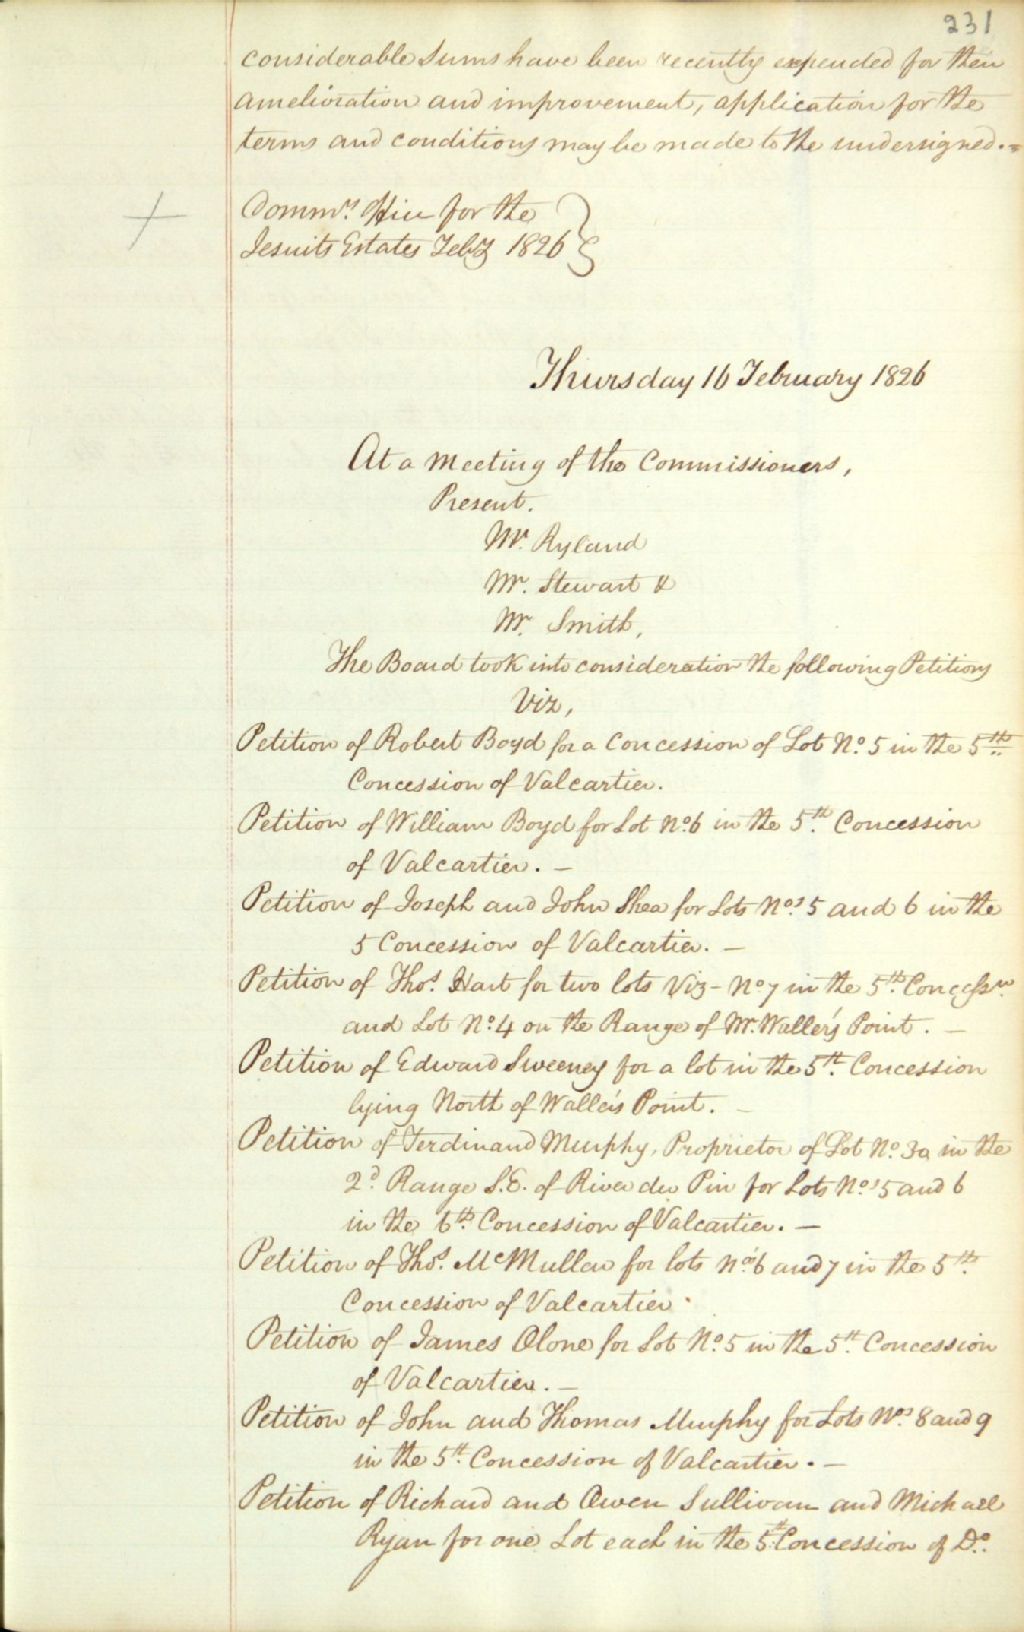 231
considerable Sums have been recently expended for their
amelioration and improvement, application for the
terms and conditions may be made to the undersigned.
Commrs. for the
Jesuits Estates Feby 1826
Thursday 16 February 1826
At a Meeting of the Commissioners,
Present.
Mr. Ryland
Mr. Stewart &
Mr. Smith,
The Board took into consideration the following Petitions
Viz,
Petition of Robert Boyd for a Concession of Lot No. 5 in the 5th
Concession of Valcartier.
Petition of William Boyd for Lot No. 6 in the 5th. Concession
of Valcartier. —
Petition of Joseph and John Shea for Lots Nos. 5 and 6 in the
5 Concession of Valcartier. —
Petition of Thos. Hart for two lots Viz - No 7 in the 5th. Concessn.
and Lot No. 4 on the Range of Mr. Waller's Point. —
Petition of Edward Sweeney for a lot in the 5th. Concession
lying North of Waller's Point. —
Petition of Ferdinand Murphy, Proprietor of Lot No. 3a in the
2d. Range S.E. of River du Pin for Lots Nos 5 and 6
in the 6th. Concession of Valcartier. —
Petition of Thos. McMullen for lots Nos 6 and 7 in the 5th.
Concession of Valcartier.
Petition of James Olone for Lot No. 5 in the 5th. Concession
of Valcartier. —
Petition of John and Thomas Murphy for Lots Nos. 8 and 9
in the 5th. Concession of Valcartier. —
Petition of Richard and Owen Sullivan and Michael
Ryan for one Lot each in the 5th Concession of Do.